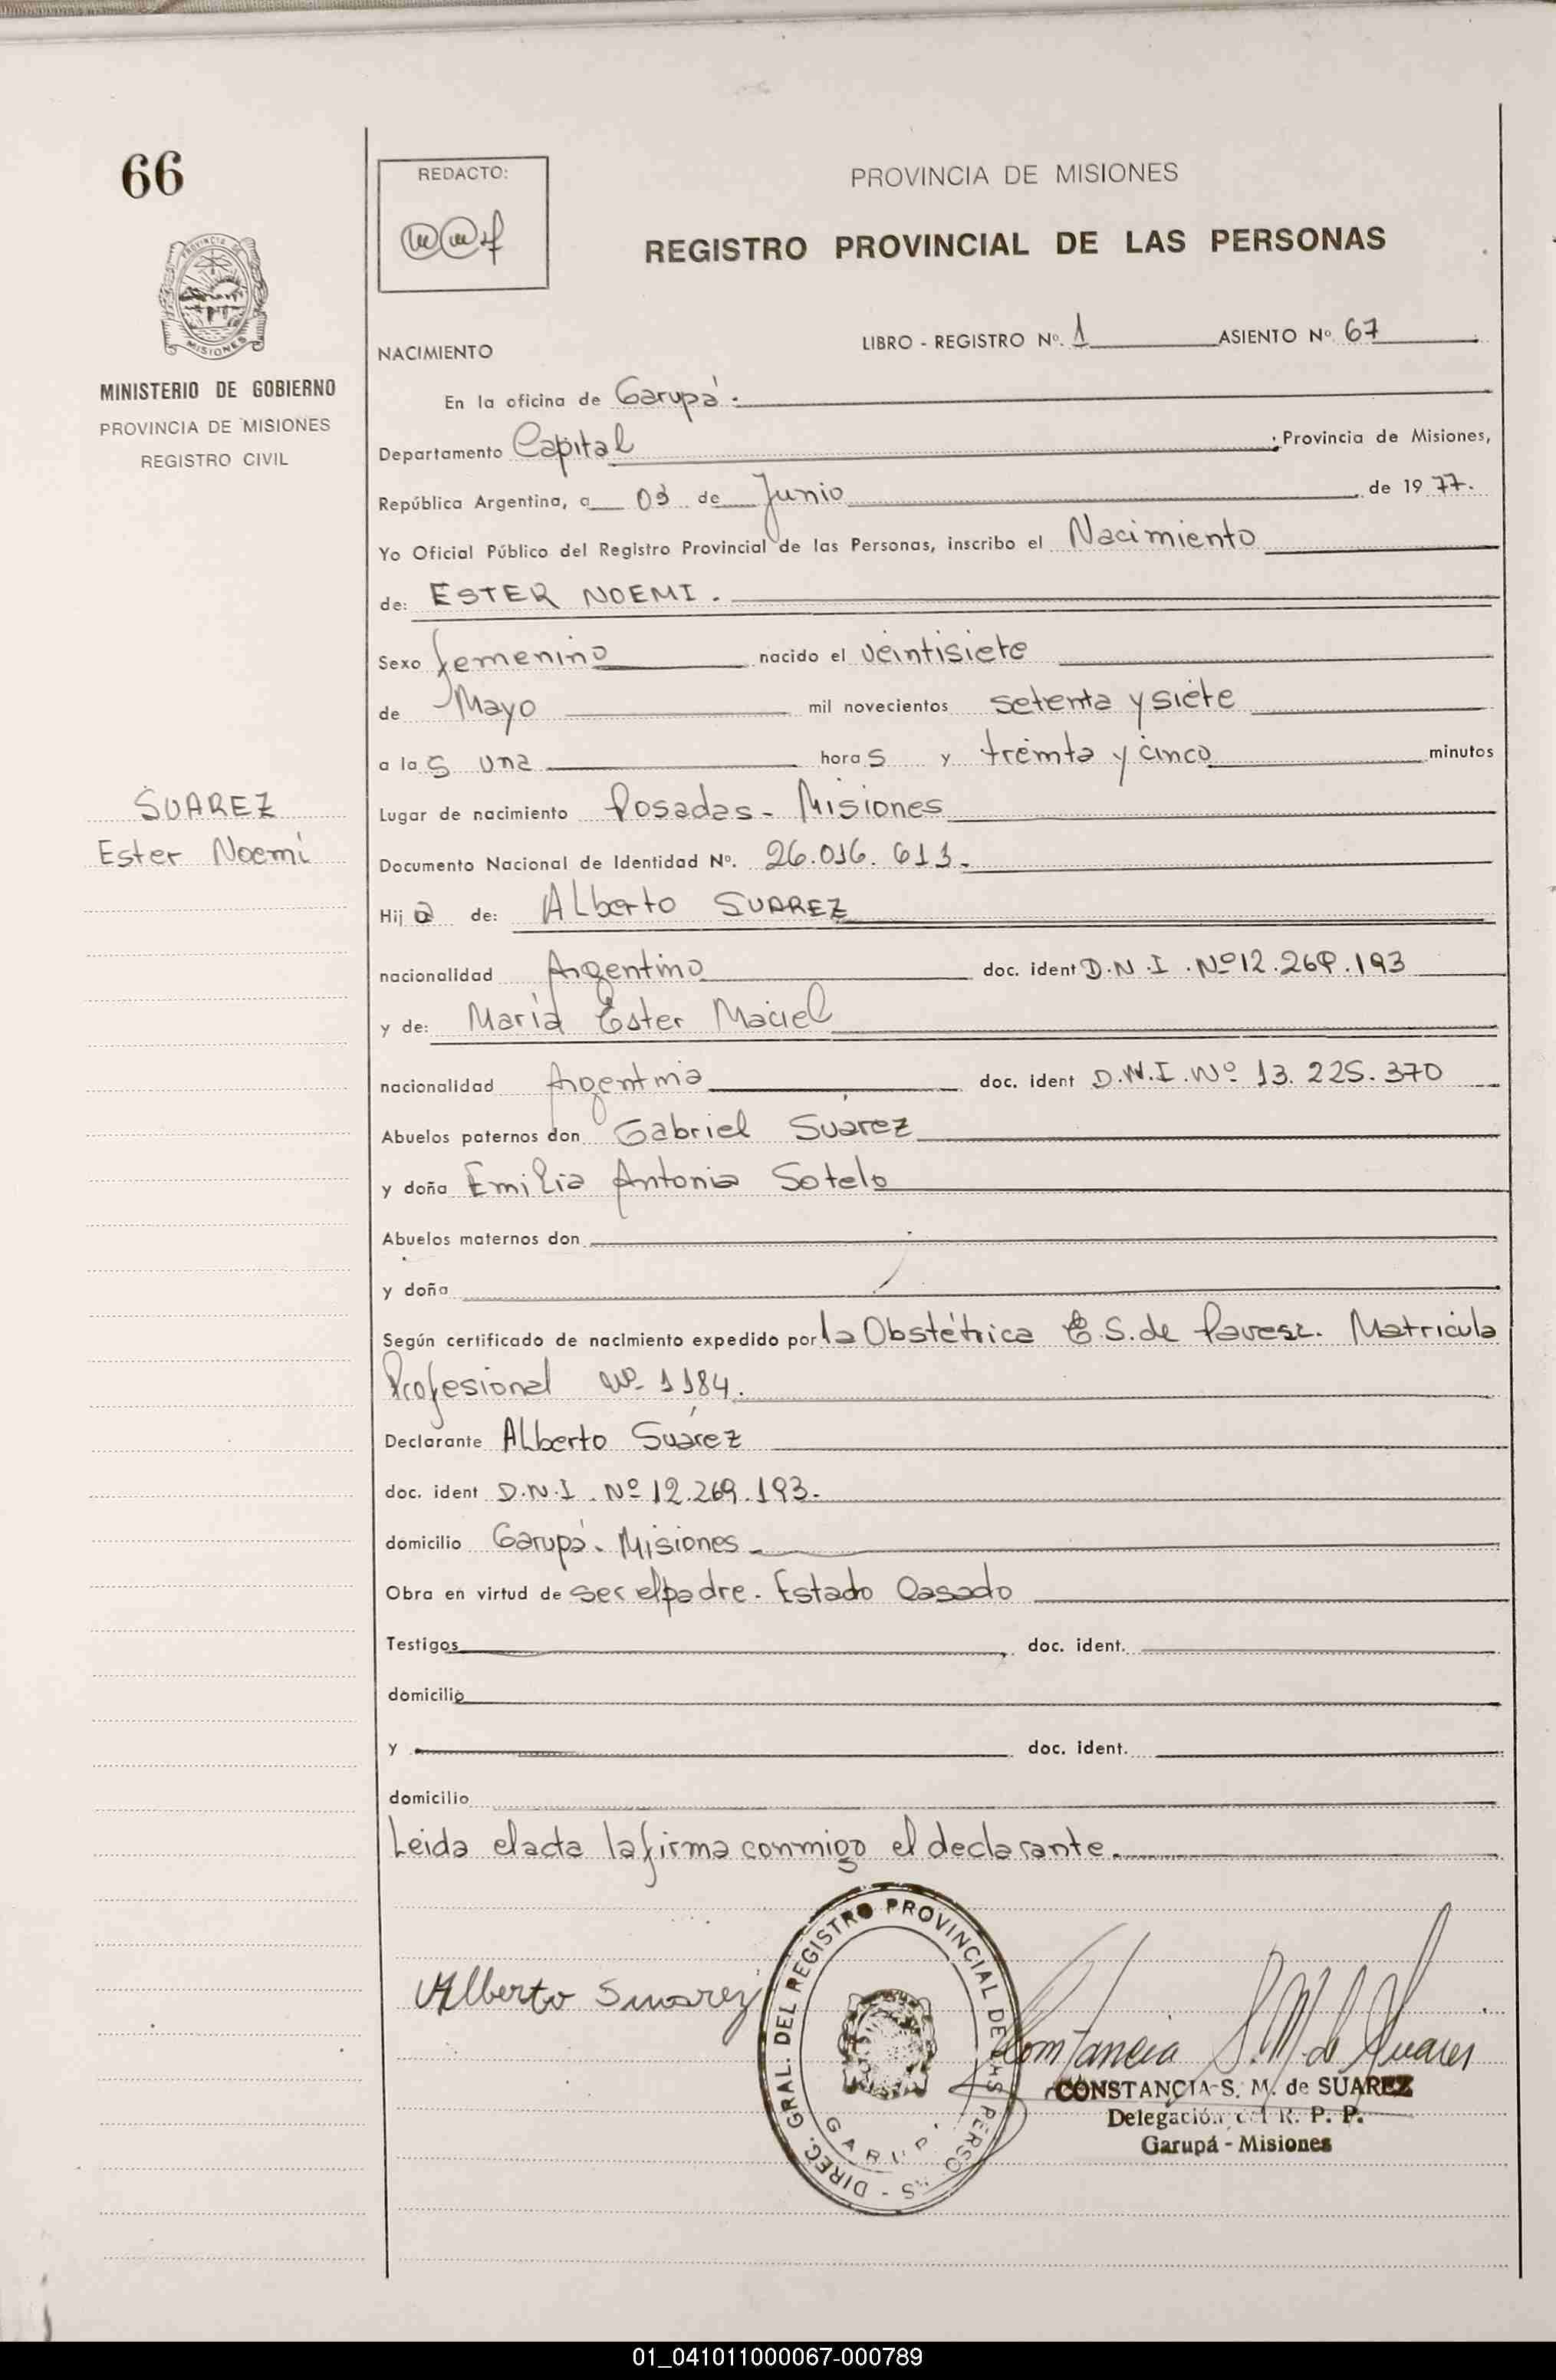 66
REDACTO:
PROVINCIA DE MISIONES
REGISTRO PROVINCIAL DE LAS PERSONAS
PROVINCIA DE
MISIONES
MINISTERIO DE GOBIERNO
PROVINCIA DE MISIONES
REGISTRO CIVIL
NACIMIENTO
LIBRO - REGISTRO Nº. 1 ASIENTO Nº 67
En la oficina de Garupá.
Departamento Capital ; Provincia de Misiones,
República Argentina, a 03 de Junio de 1977.
Yo Oficial Público del Registro Provincial de las Personas, inscribo el Nacimiento
de: ESTER NOEMI.
Sexo femenino nacido el veintisiete
de Mayo mil novecientos setenta y siete
a las una horas y treinta y cinco minutos
SUAREZ
Ester Noemí
Lugar de nacimiento Posadas - Misiones
Documento Nacional de Identidad Nº. 26.016.613.
Hija de: Alberto SUAREZ
nacionalidad Argentino doc. ident D.N.I. Nº 12.269.193
y de: María Ester Maciel
nacionalidad Argentina doc. ident D.N.I. Nº 13.225.370
Abuelos paternos don Gabriel Suárez
y doña Emilia Antonia Sotelo
Abuelos maternos don
y doña
Según certificado de nacimiento expedido por la Obstétrica E.S. de Matricula
Profesional Nº 1184.
Declarante Alberto Suárez
doc. ident D.N.I. Nº 12.269.193.
domicilio Garupá. Misiones
Obra en virtud de ser el padre. Estado Casado
Testigos doc. ident.
domicilio
y doc. ident.
domicilio
Leida el acta la firma conmigo el declarante.
Alberto Suarez
DIREC. GRAL. DEL REGISTRO PROVINCIAL DE LAS
Constancia S. M. de Suarez
CONSTANCIA S. M. de SUAREZ
Delegación R. P. P.
Garupá - Misiones
01_041011000067-000789